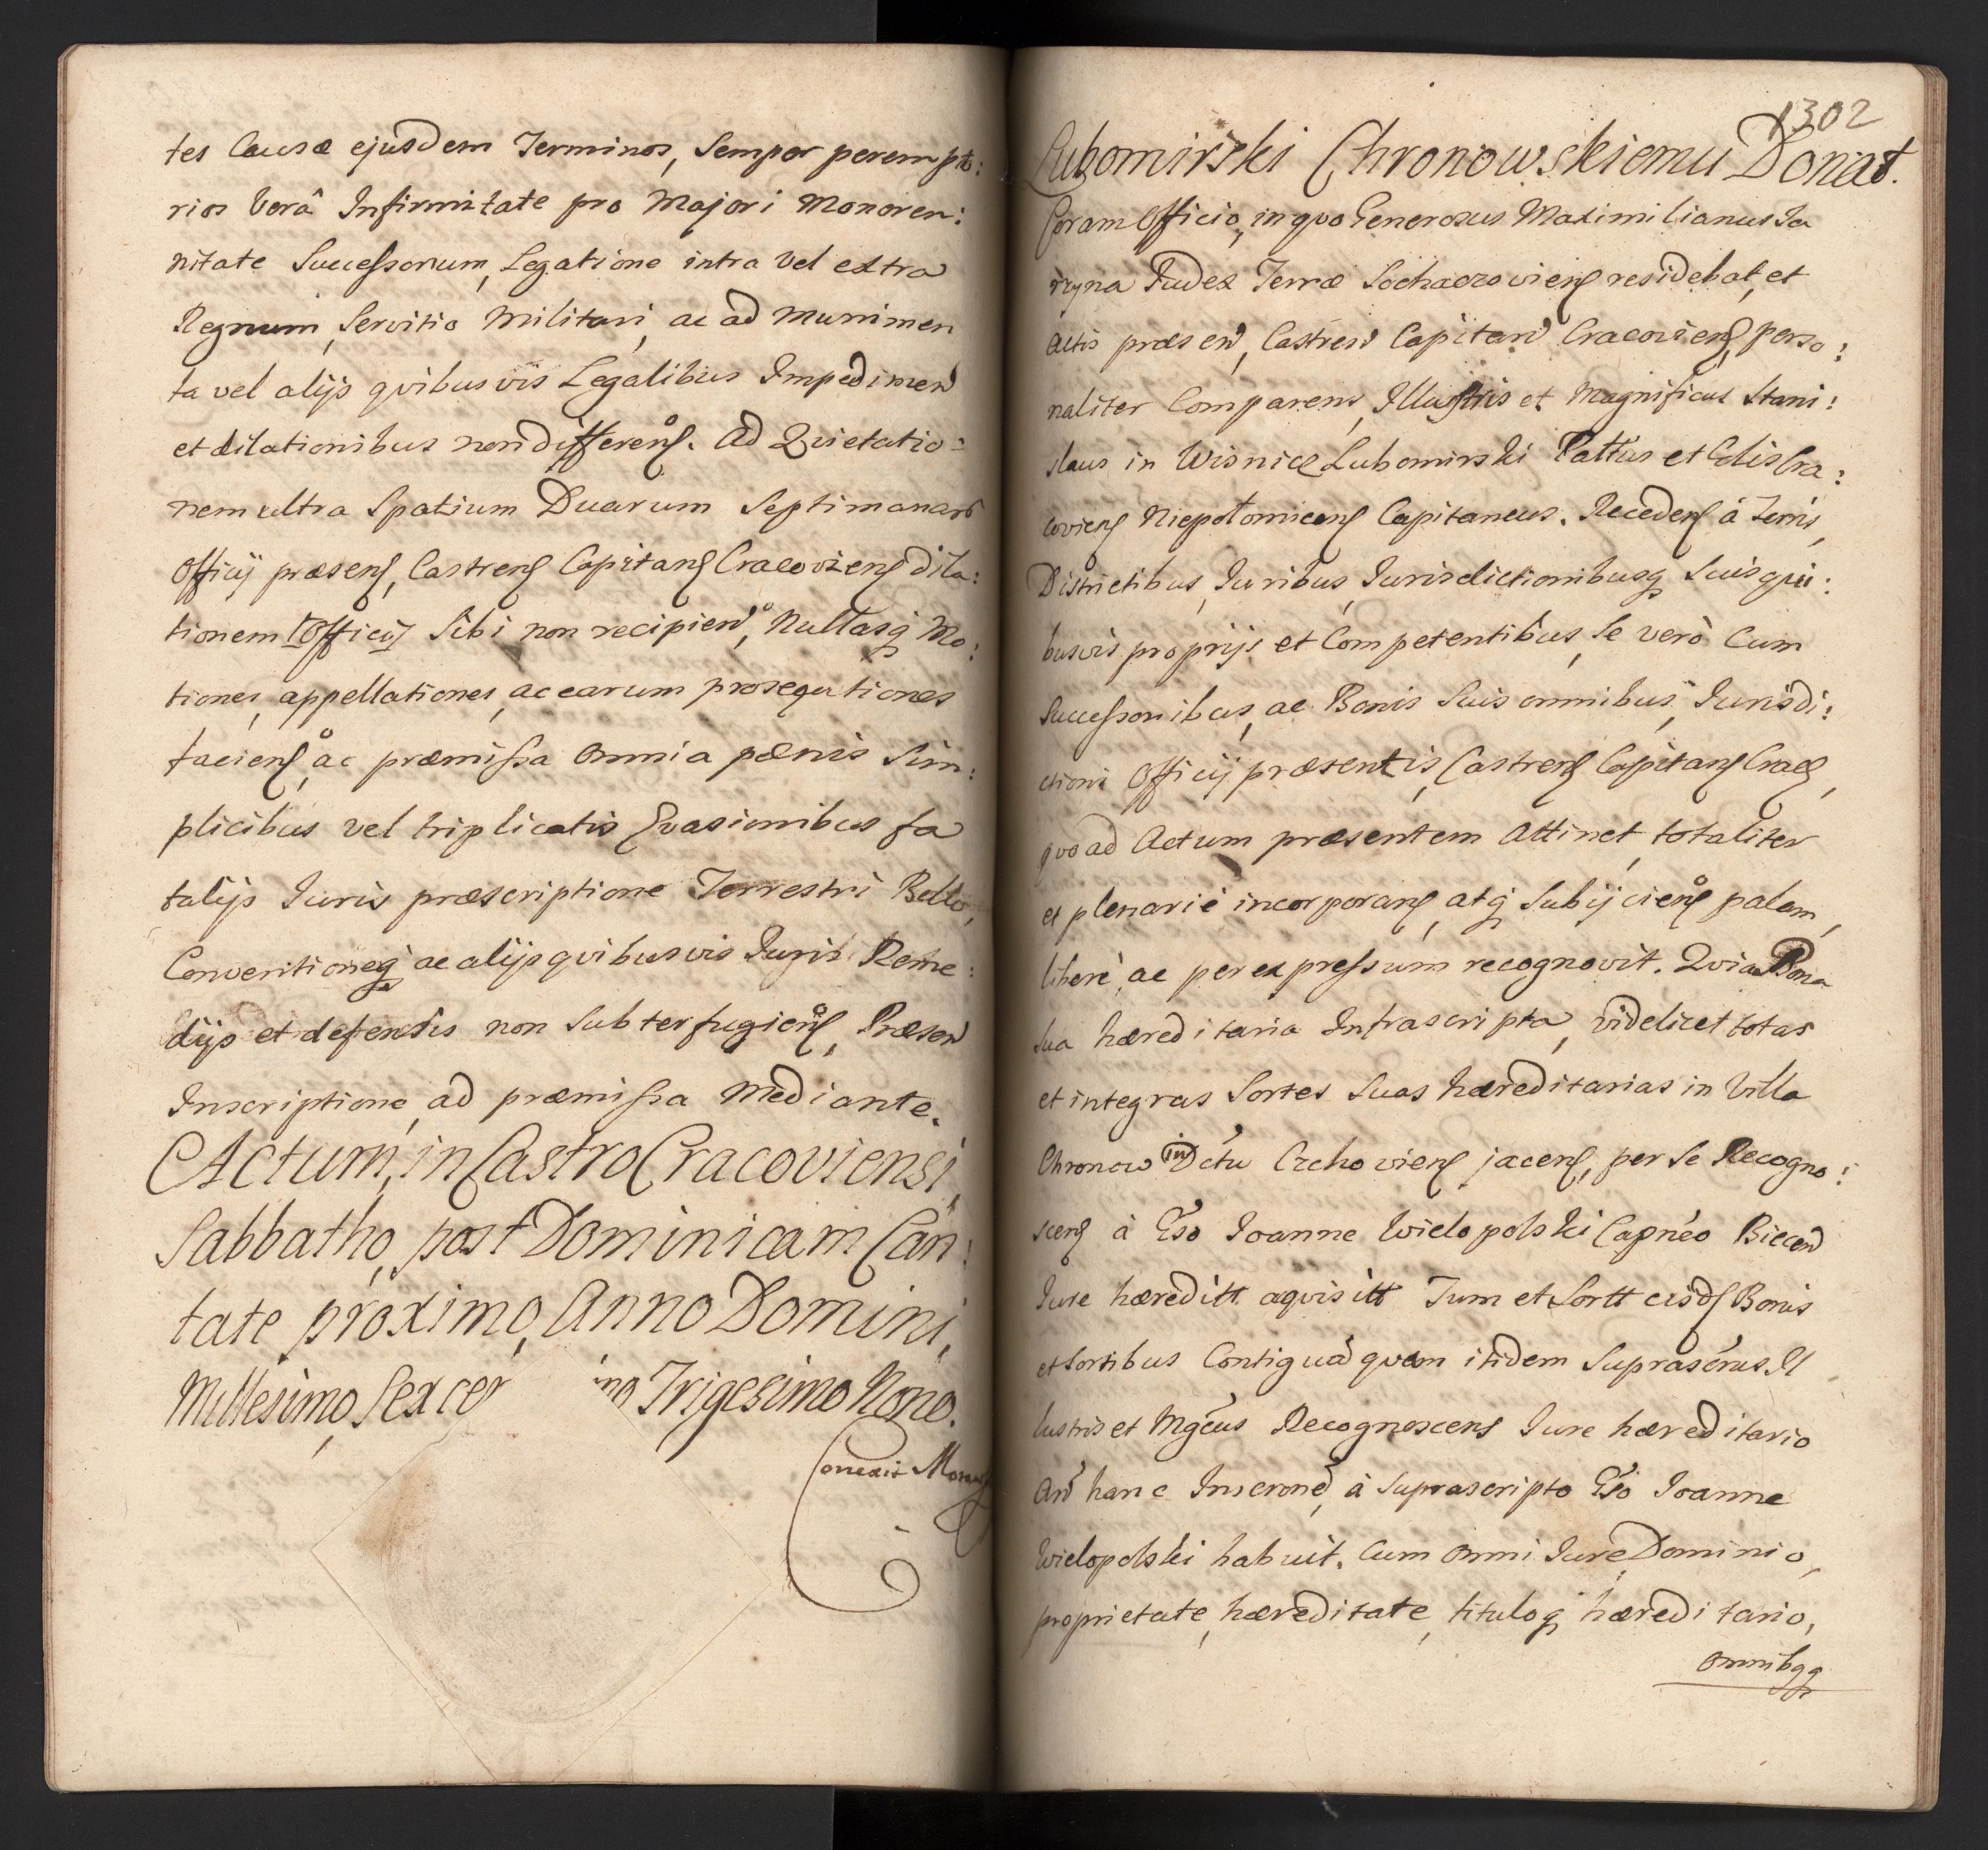 tes Causæ ejusdem Terminos, Semper perempto:
rios Verâ Infirmitate pro Majori Monoren:
nitate Successorum, Legatione intra Vel extra
Regnum, Servitio Militari, ac ad Munimen
ta vel alijs qvibusvis Legalibus Impedimen
et dilationibus non differens. Ad Qvietatio:
nem ultra Spatium Duarum Septimanar
Officij præsens, Castrens Capitans Cracoviens dila:
tionem Officij Sibi non recipien, Nullasq Mo:
tiones, appellationes, ac earum prosequtiones
faciens, ac præmissa Omnia pœnis Sim:
plicibus vel triplicatis Evasionibus fa
talijs Iuris præscriptione Terrestri Bello,
Conventioneq ac alijs qvibusvis Iuris Reme:
dijs et defensis non Subterfugiens, Præsen
Inscriptione, ad præmissa Mediante.
Actum, in Castro Cracoviensi,
Sabbatho, post Dominicam Can:
tate proximo, Anno Domini,
Millesimo, Sexcen mo Trigesimo Nono.
Correxit
1302
Lubomirski Chronowskiemu Donat.
Coram Officio, in qvo Generosus Maximilianus Ja
rzyna Judex Terræ Sochaczoviens residebat, et
Actis præsen, Castren Capitan Cracoviens, perso:
naliter Comparens, Illustris et Magnificus Stani:
slaus in Wisnice Lubomirski Pallus et Glis Cra:
coviens Niepołomicens Capitaneus. Recedens à Terris,
Districtibus, Iuribus, Iurisdictionibusq Suis qvi:
busvis proprijs et Competentibus, Se verò Cum
Successoribus, ac Bonis Suis omnibus, Iurisdi:
ctioni Officij præsentis, Castrens Capitans Crac,
qvo ad Actum præsentem Attinet, totaliter
et plenariè incorporans, atq Subijciens palam,
liberè, ac per expressum recognovit. Qvia Bona
Sua hæreditaria Infrascripta, videlicet totas
et integras Sortes Suas hæreditarias in Villa
Chronow in Dctu Czchoviens jacens, per Se Recogno:
scens à Gso Joanne Wielopolski Capneo Biecen
Iure hæreditt aqvisitt Tum et Sortt eisd Bonis
et Sortibus Contigua qvam itidem Suprascrus Il
lustris et Mgcus Recognoscens Iure hæreditario
An hanc Inscrone, à Suprascripto Gso Joanne
Wielopolski habuit. Cum Omni Iure, Dominio,
proprietate, hæreditate, tituloq hæreditario,
Omnibqq